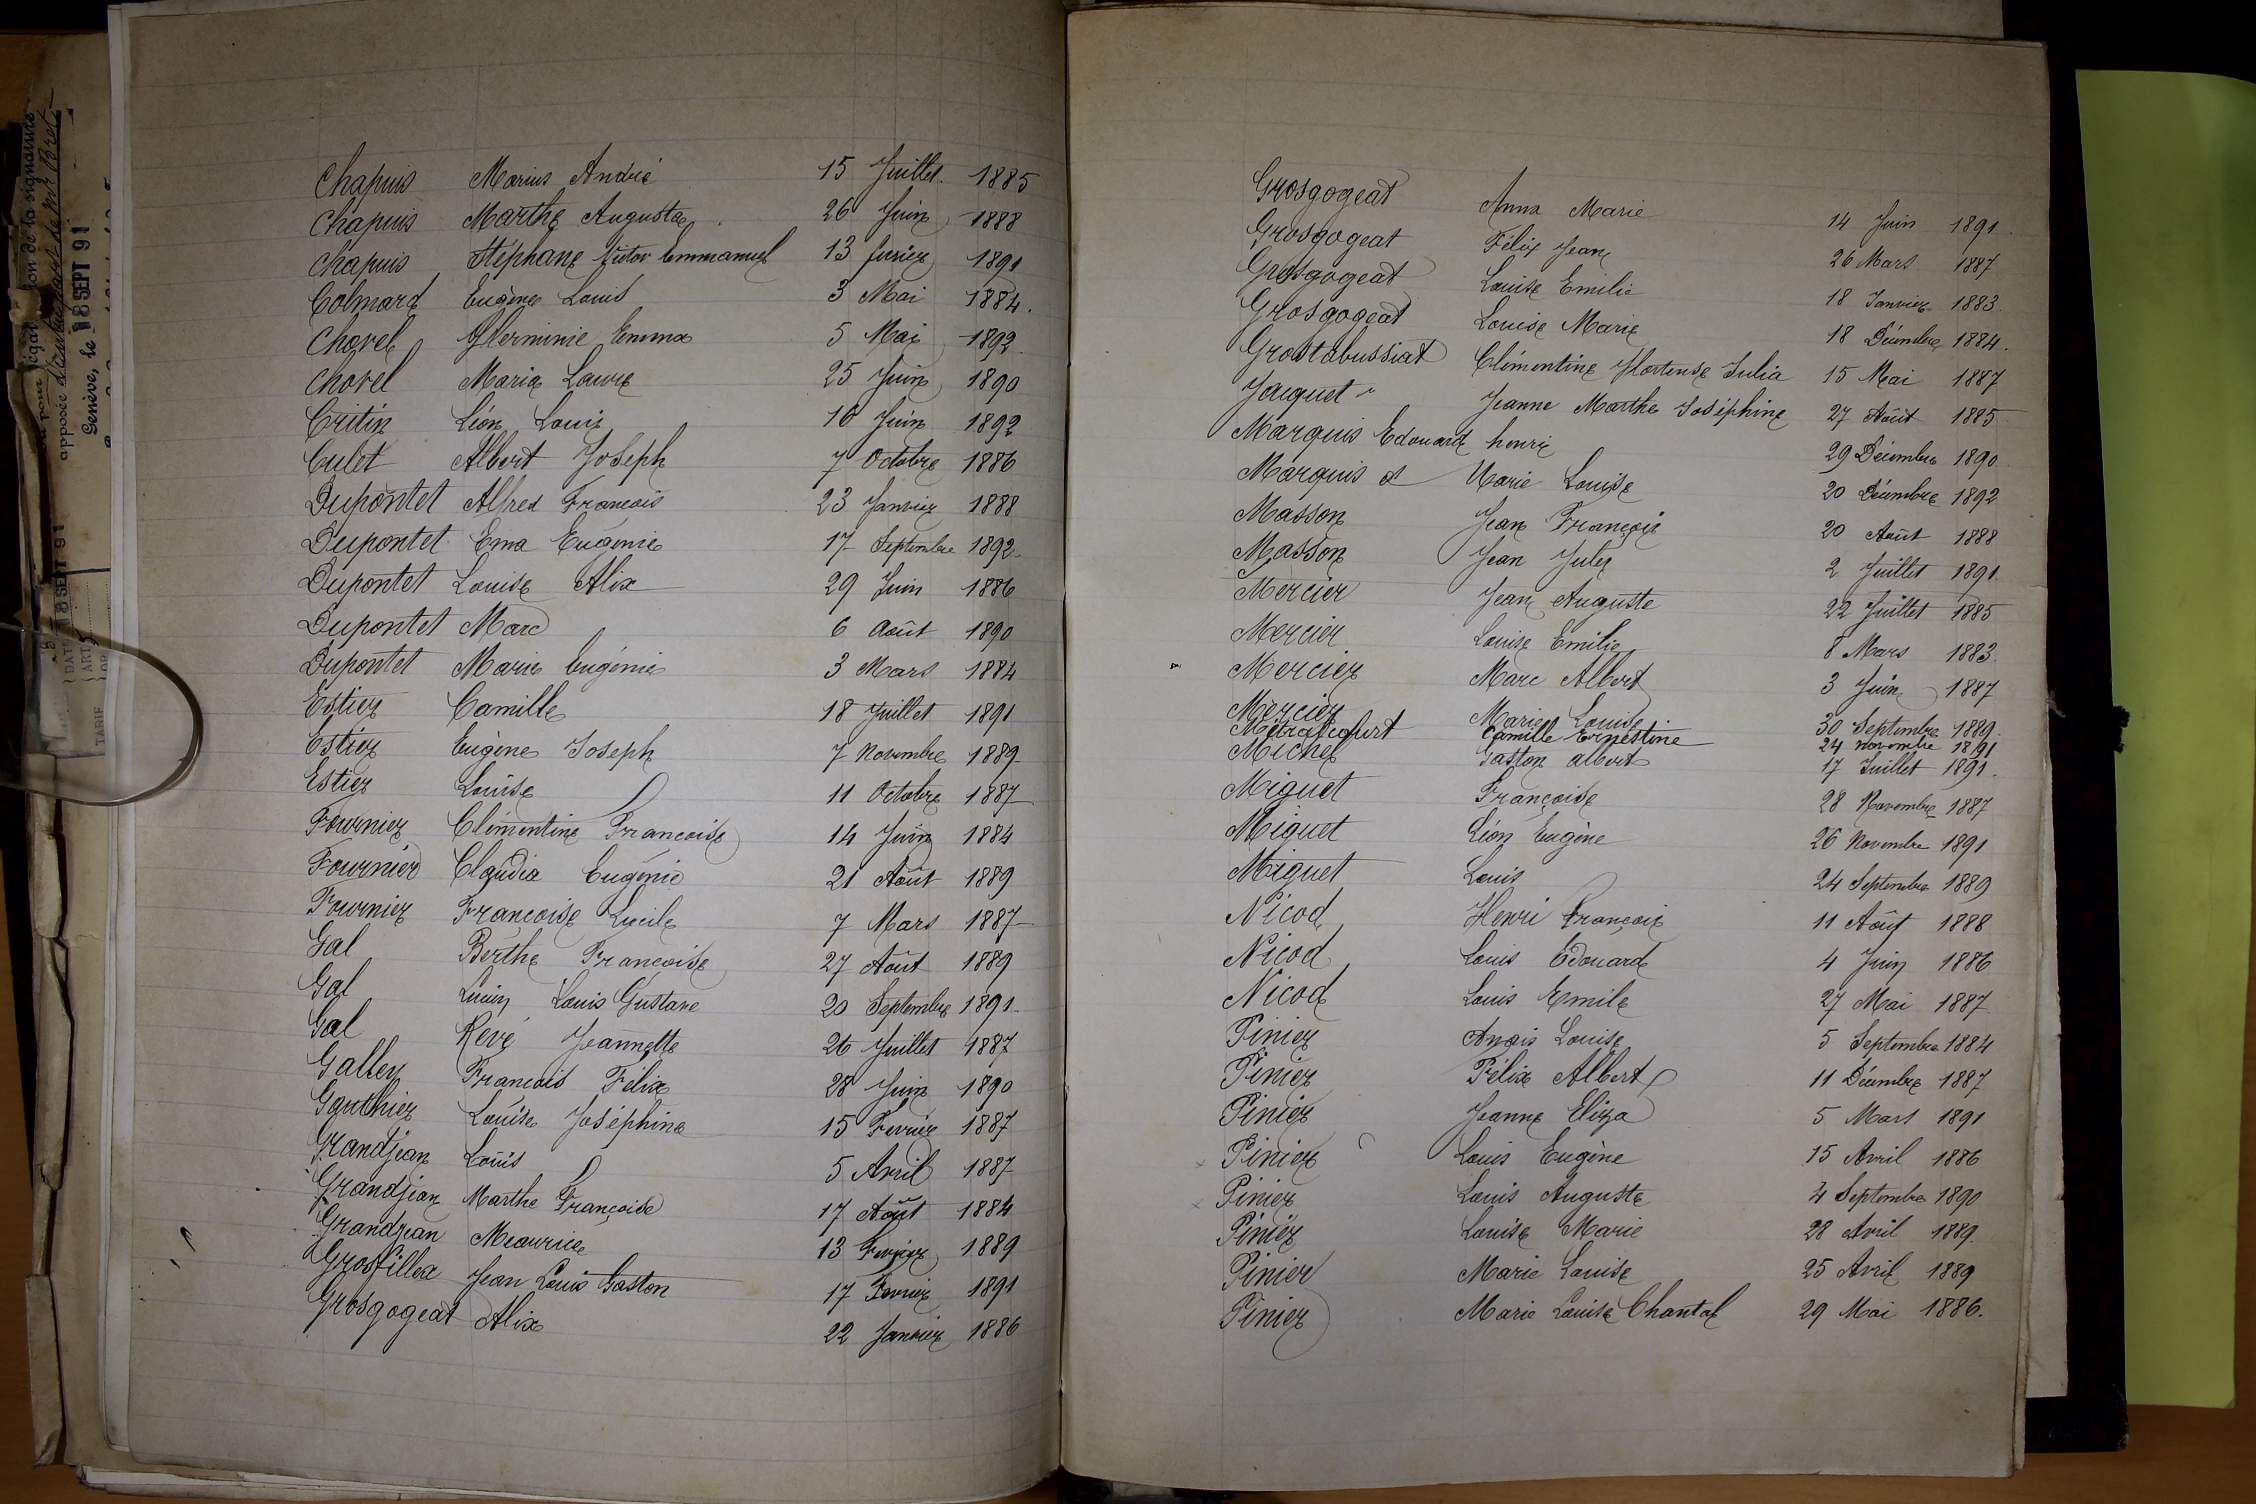 Chapuis Marius André 15 Juillet 1885
Chapuis Marthe Augusta 26 Juin 1888
Chapuis Stéphane Victor Emmanuel 13 février 1891
Colmard Eugène Louis 3 Mai 1884.
Chorel Herminie Emma 5 Mai 1892
Chorel Maria Laure 25 Juin 1890
Critin Léon Louis 16 Juin 1892
Culet Albert Joseph 7 Octobre 1886
Dupontet Alfred François 23 Janvier 1888
Dupontet Ema Eugénie 17 Septembre 1892
Dupontet Louise Alix 29 Juin 1886
Dupontet Marc 6 Août 1890
Dupontet Marie Eugénie 3 Mars 1884
Estier Camille 18 Juillet 1891
Estier Eugène Joseph 7 Novembre 1889
Estier Louise 11 Octobre 1887
Fournier Clémentine Françoise 14 Juin 1884
Fournier Claudia Eugénie 21 Août 1889
Fournier Françoise Lucile 7 Mars 1887
Gal Berthe Françoise 27 Août 1889
Gal Lucien Louis Gustave 20 Septembre 1891
Gal Jeannette 26 Juillet 1887
Galley François Félix 28 Juin 1890
Gauthier Louise Joséphine 15 Fevrier 1887
Grandjean Louis 5 Avril 1887
Grandjean Marthe Françoise 17 Août 1884
Grandjean Maurice 13 Fevrier 1889
Grosfillex Jean Louis Gaston 17 Fevrier 1891
Grosgogeat Alix 22 Janvier 1886
Grosgogeat Anna Marie 14 Juin 1891
Grosgogeat Félix Jean 26 Mars 1887
Grosgogeat Louise Emilie 18 Janvier 1883
Grosgogeat Louise Marie 18 Décembre 1884.
Grostabussiat Clémentine Hortense Julia 15 Mai 1887
Jacquet Jeanne Marthe Joséphine 27 Août 1885
Marquis Edouard henri 29 Décembre 1890
Marquis Marie Louise 20 Décembre 1892
Masson Jean François 20 Août 1888
Masson Jean Jules 2 Juillet 1891
Mercier Jean Auguste 22 Juillet 1885
Mercier Louise Emilie 8 Mars 1883
Mercier Marc Albert 3 Juin 1887
Mercier Marie Louise 30 Septembre 1889
Camille Ernestine 24 novembre 1891
Michel Gaston albert 17 Juillet 1891.
Miguet Françoise 28 Novembre 1887
Miguet Léon Eugène 26 Novembre 1891
Miguet Louis 24 Septembre 1889
Nicod Henri François 11 Août 1888
Nicod Louis Edouard 4 Juin 1886
Nicod Louis Emile 27 Mai 1887
Pinier Anaïs Louise 5 Septembre 1884
Pinier Félix Albert 11 Décembre 1887
Pinier Jeanne Eliza 5 Mars 1891
Pinier Louis Eugène 15 Avril 1886
Pinier Louis Auguste 4 Septembre 1890
Pinier Louise Marie 28 Avril 1889
Pinier Marie Louise 25 Avril 1889
Pinier Marie Louise Chantal 29 Mai 1886.
de la signature
apposée
Genève, le 18 SEPT 91
18 SEPT 91
TARIF